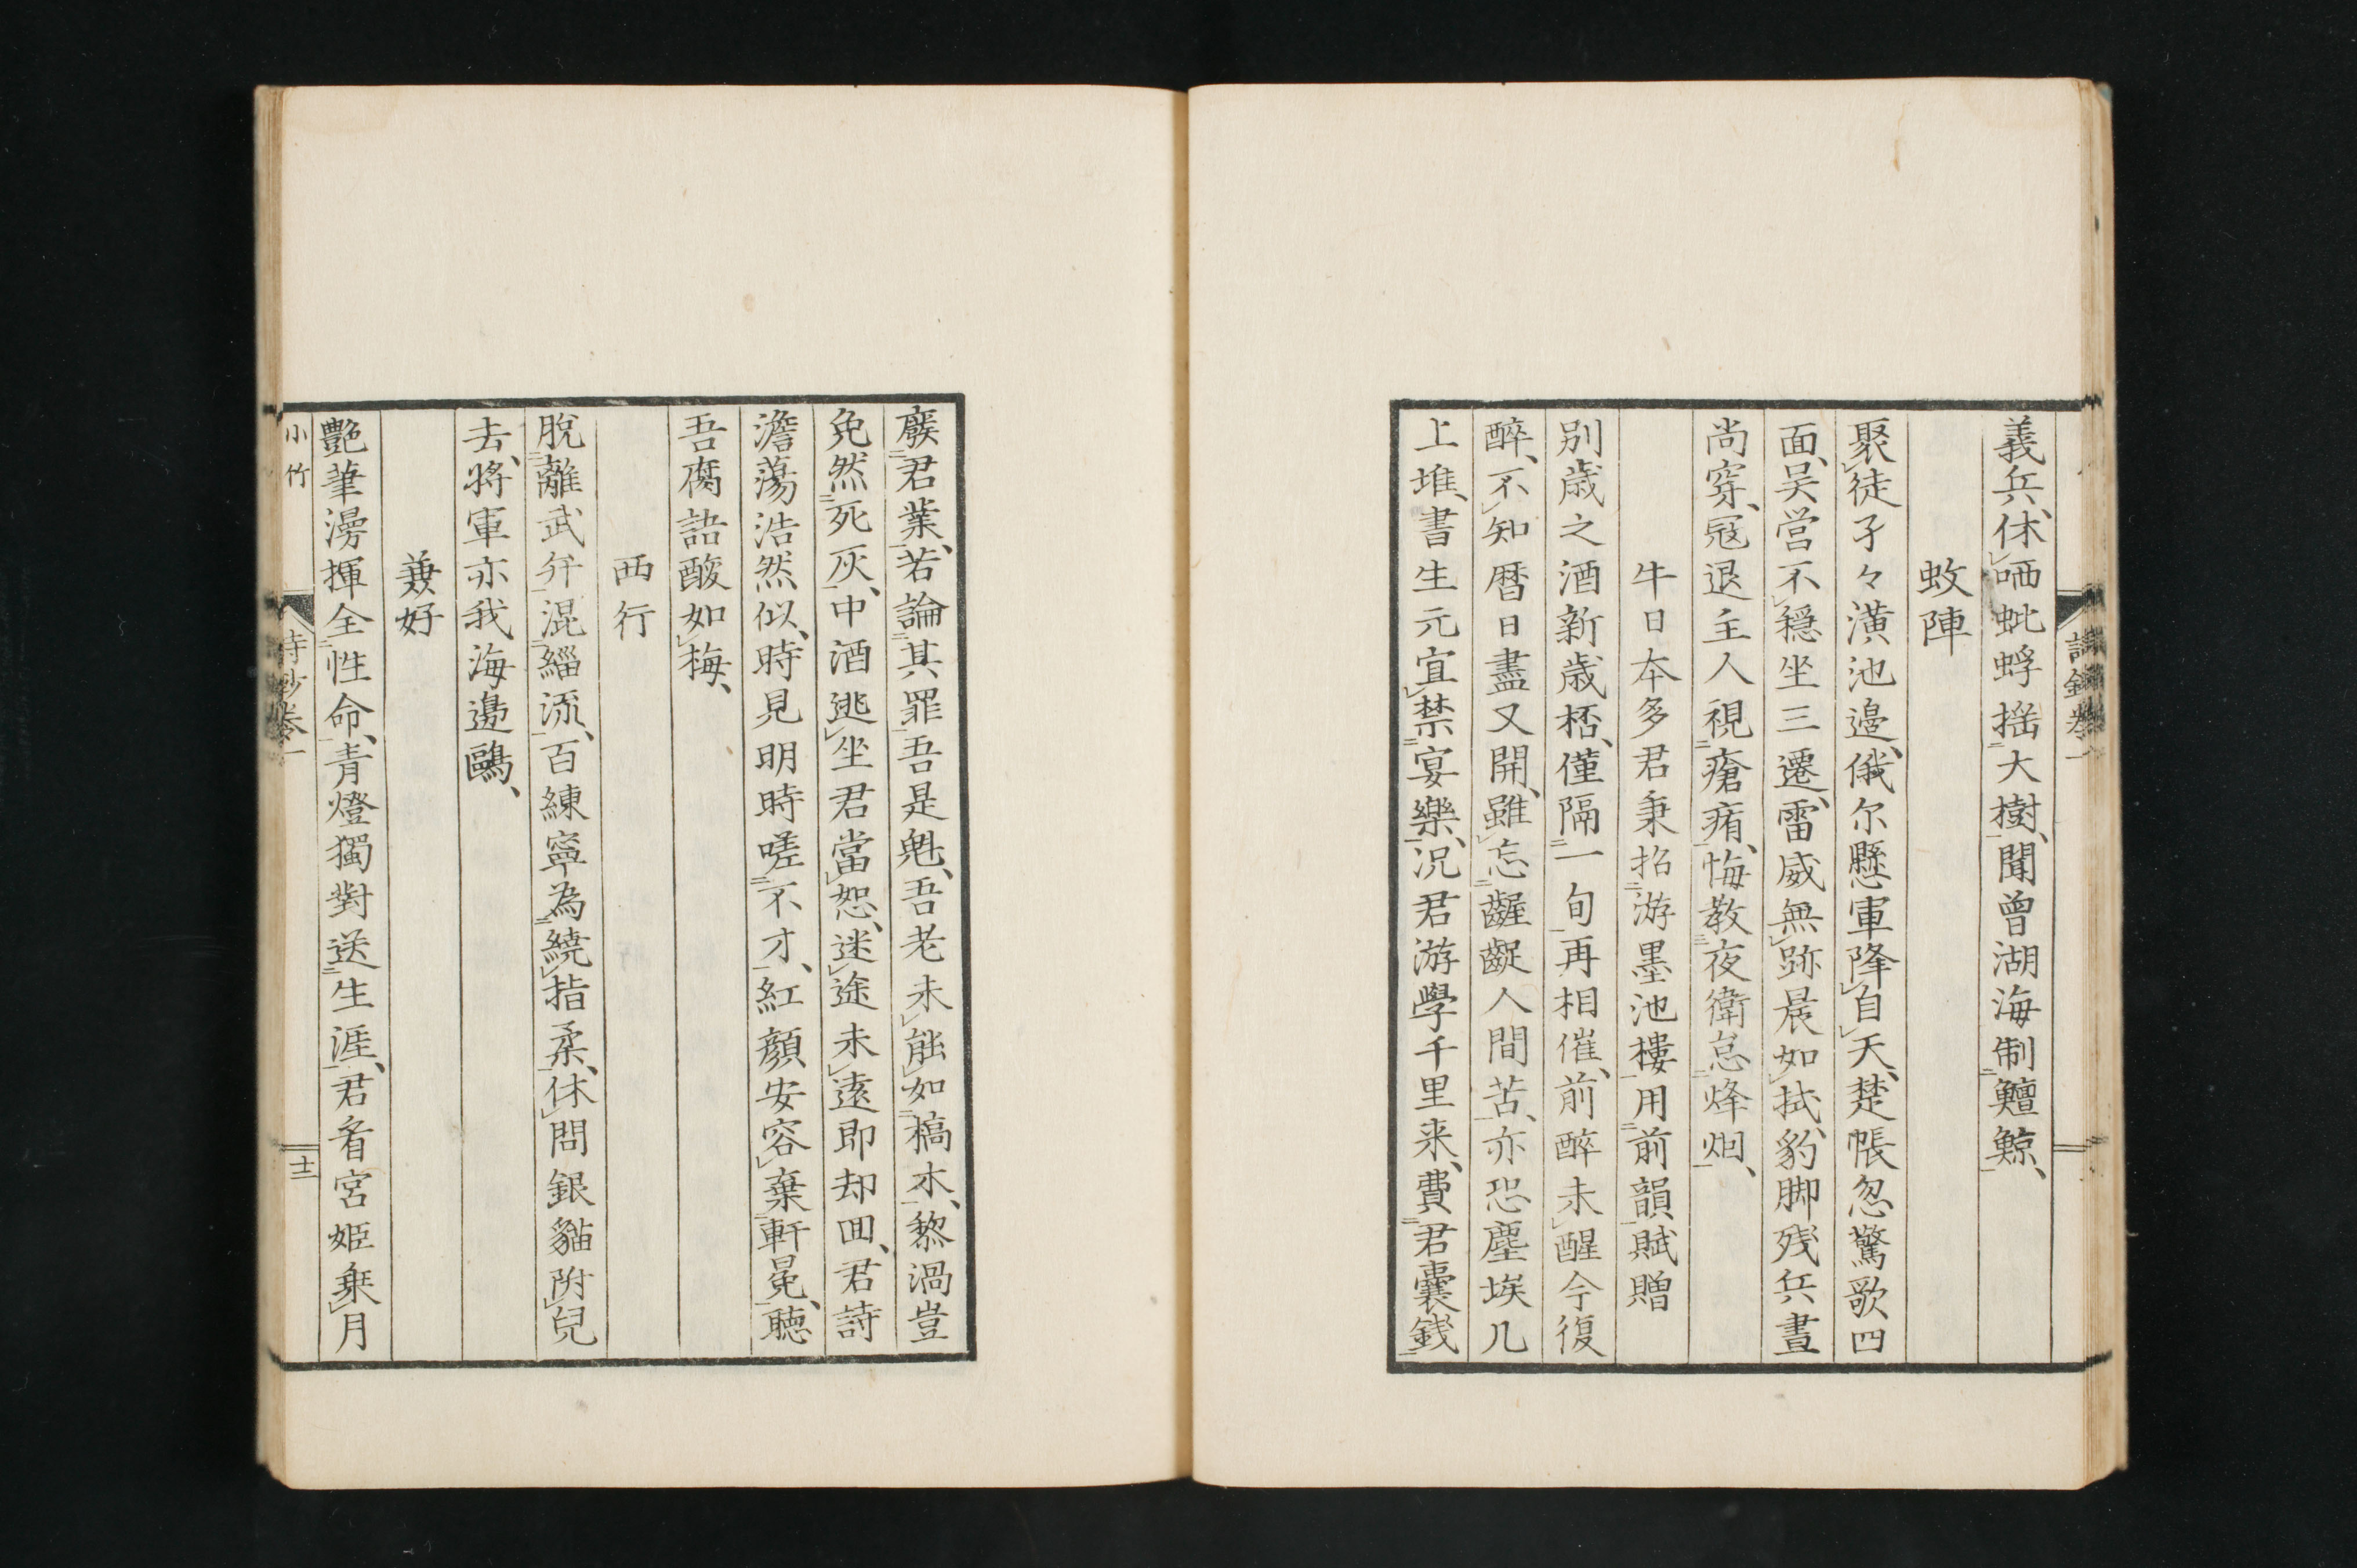 詩鈔卷一
義兵、休哂蚍蜉揺大樹、聞曾湖海制鱣鯨、
蚊陣
聚徒孑々潢池邉、俄尔懸軍降自天、楚帳忽驚歌四
面、吴営不穏坐三遷、雷威無跡晨如拭、豹脚残兵晝
尚穿、冦退主人視瘡痏、悔教夜衛怠烽烟、
牛日本多君秉招游墨池樓用前韻賦贈
別歳之酒新歳桮、僅隔一旬再相催、前醉未醒今復
醉、不知暦日盡又開、雖忘齷齪人間苦、亦恐塵埃几
上堆、書生元宜禁宴樂、況君游學千里来、費君嚢銭
廢君業、若論其罪吾是魁、吾老未能如槁木、黎渦豈
免然死灰、中酒逃坐君當恕、迷途未遠即却囬、君詩
澹蕩浩然似、時見明時嗟不才、紅顔安容棄軒冕、聴
吾腐語酸如梅、
西行
脱離武弁混緇流、百練寧為繞指柔、休問銀貓附兒
去、将軍亦我海邉鷗、
兼好
艶筆漫揮全性命、青燈獨對送生涯、君看宮姫乗月
小竹
詩鈔卷一
十二